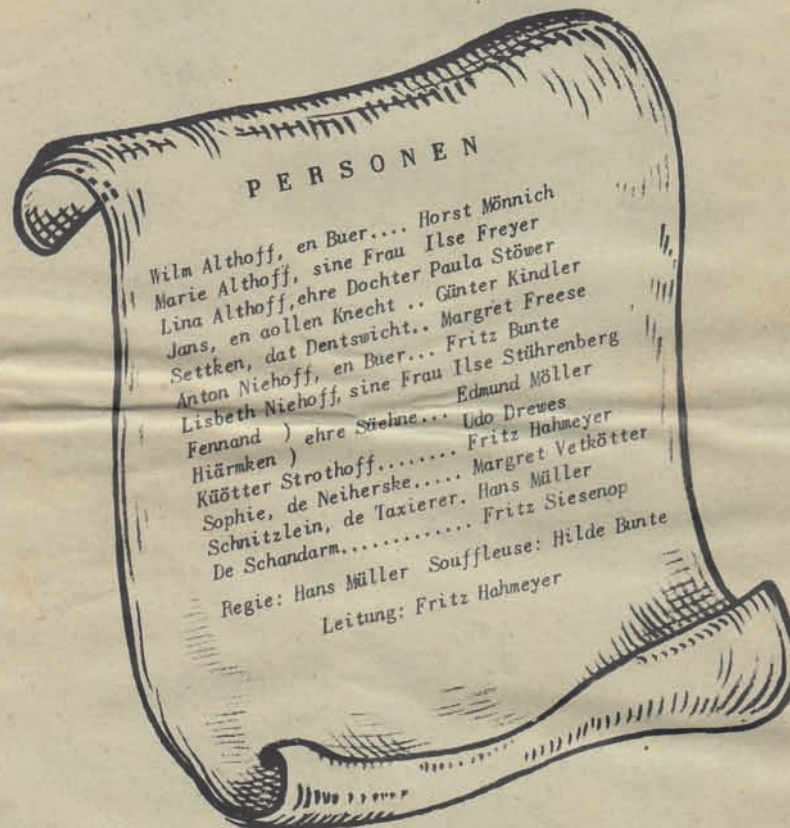 PERSONEN
Wilm Althoff, en Buer.... Horst Mönnich
Marie Althoff, sine Frau Ilse Freyer
Lina Althoff,ehre Dochter Paula Stöwer
Jans, en aollen Knecht .. Günter Kindler
Settken, dat Dentswicht.. Margret Freese
Anton Niehoff, en Buer... Fritz Bunte
Lisbeth Niehoff, sine Frau Ilse Stührenberg
Fennand ) ehre Süehne... Edmund Möller
Hiärmken ) Udo Drewes
Küötter Strothoff........ Fritz Hahmeyer
Sophie, de Neiherske..... Margret Vetkötter
Schnitzlein, de Taxierer. Hans Müller
De Schandarm............. Fritz Siesenop
Regie: Hans Müller Souffleuse: Hilde Bunte
Leitung: Fritz Hahmeyer